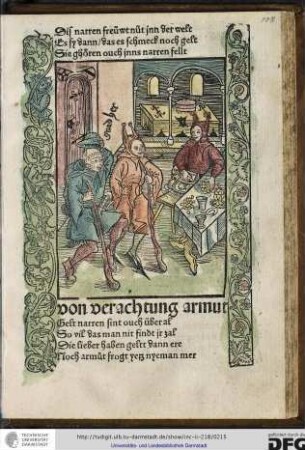 Diß narren freüwt nüt jnn der welt
Es sy dann, das es schmeck noch gelt
Sie ghören ouch jnns narren fellt
gnad her
von verachtung armut
Gelt narren sint ouch über al
So vil das man nit findt jr zal
Die lieber haben gelt dann ere
Noch armůt frogt yetz nyeman mer
TECHNISCHE UNIVERSITÄT DARMSTADT
http://tudigit.ulb.tu-darmstadt.de/show/inc-iv-218/0215
Universitäts- und Landesbibliothek Darmstadt
gefördert durch die
DFG